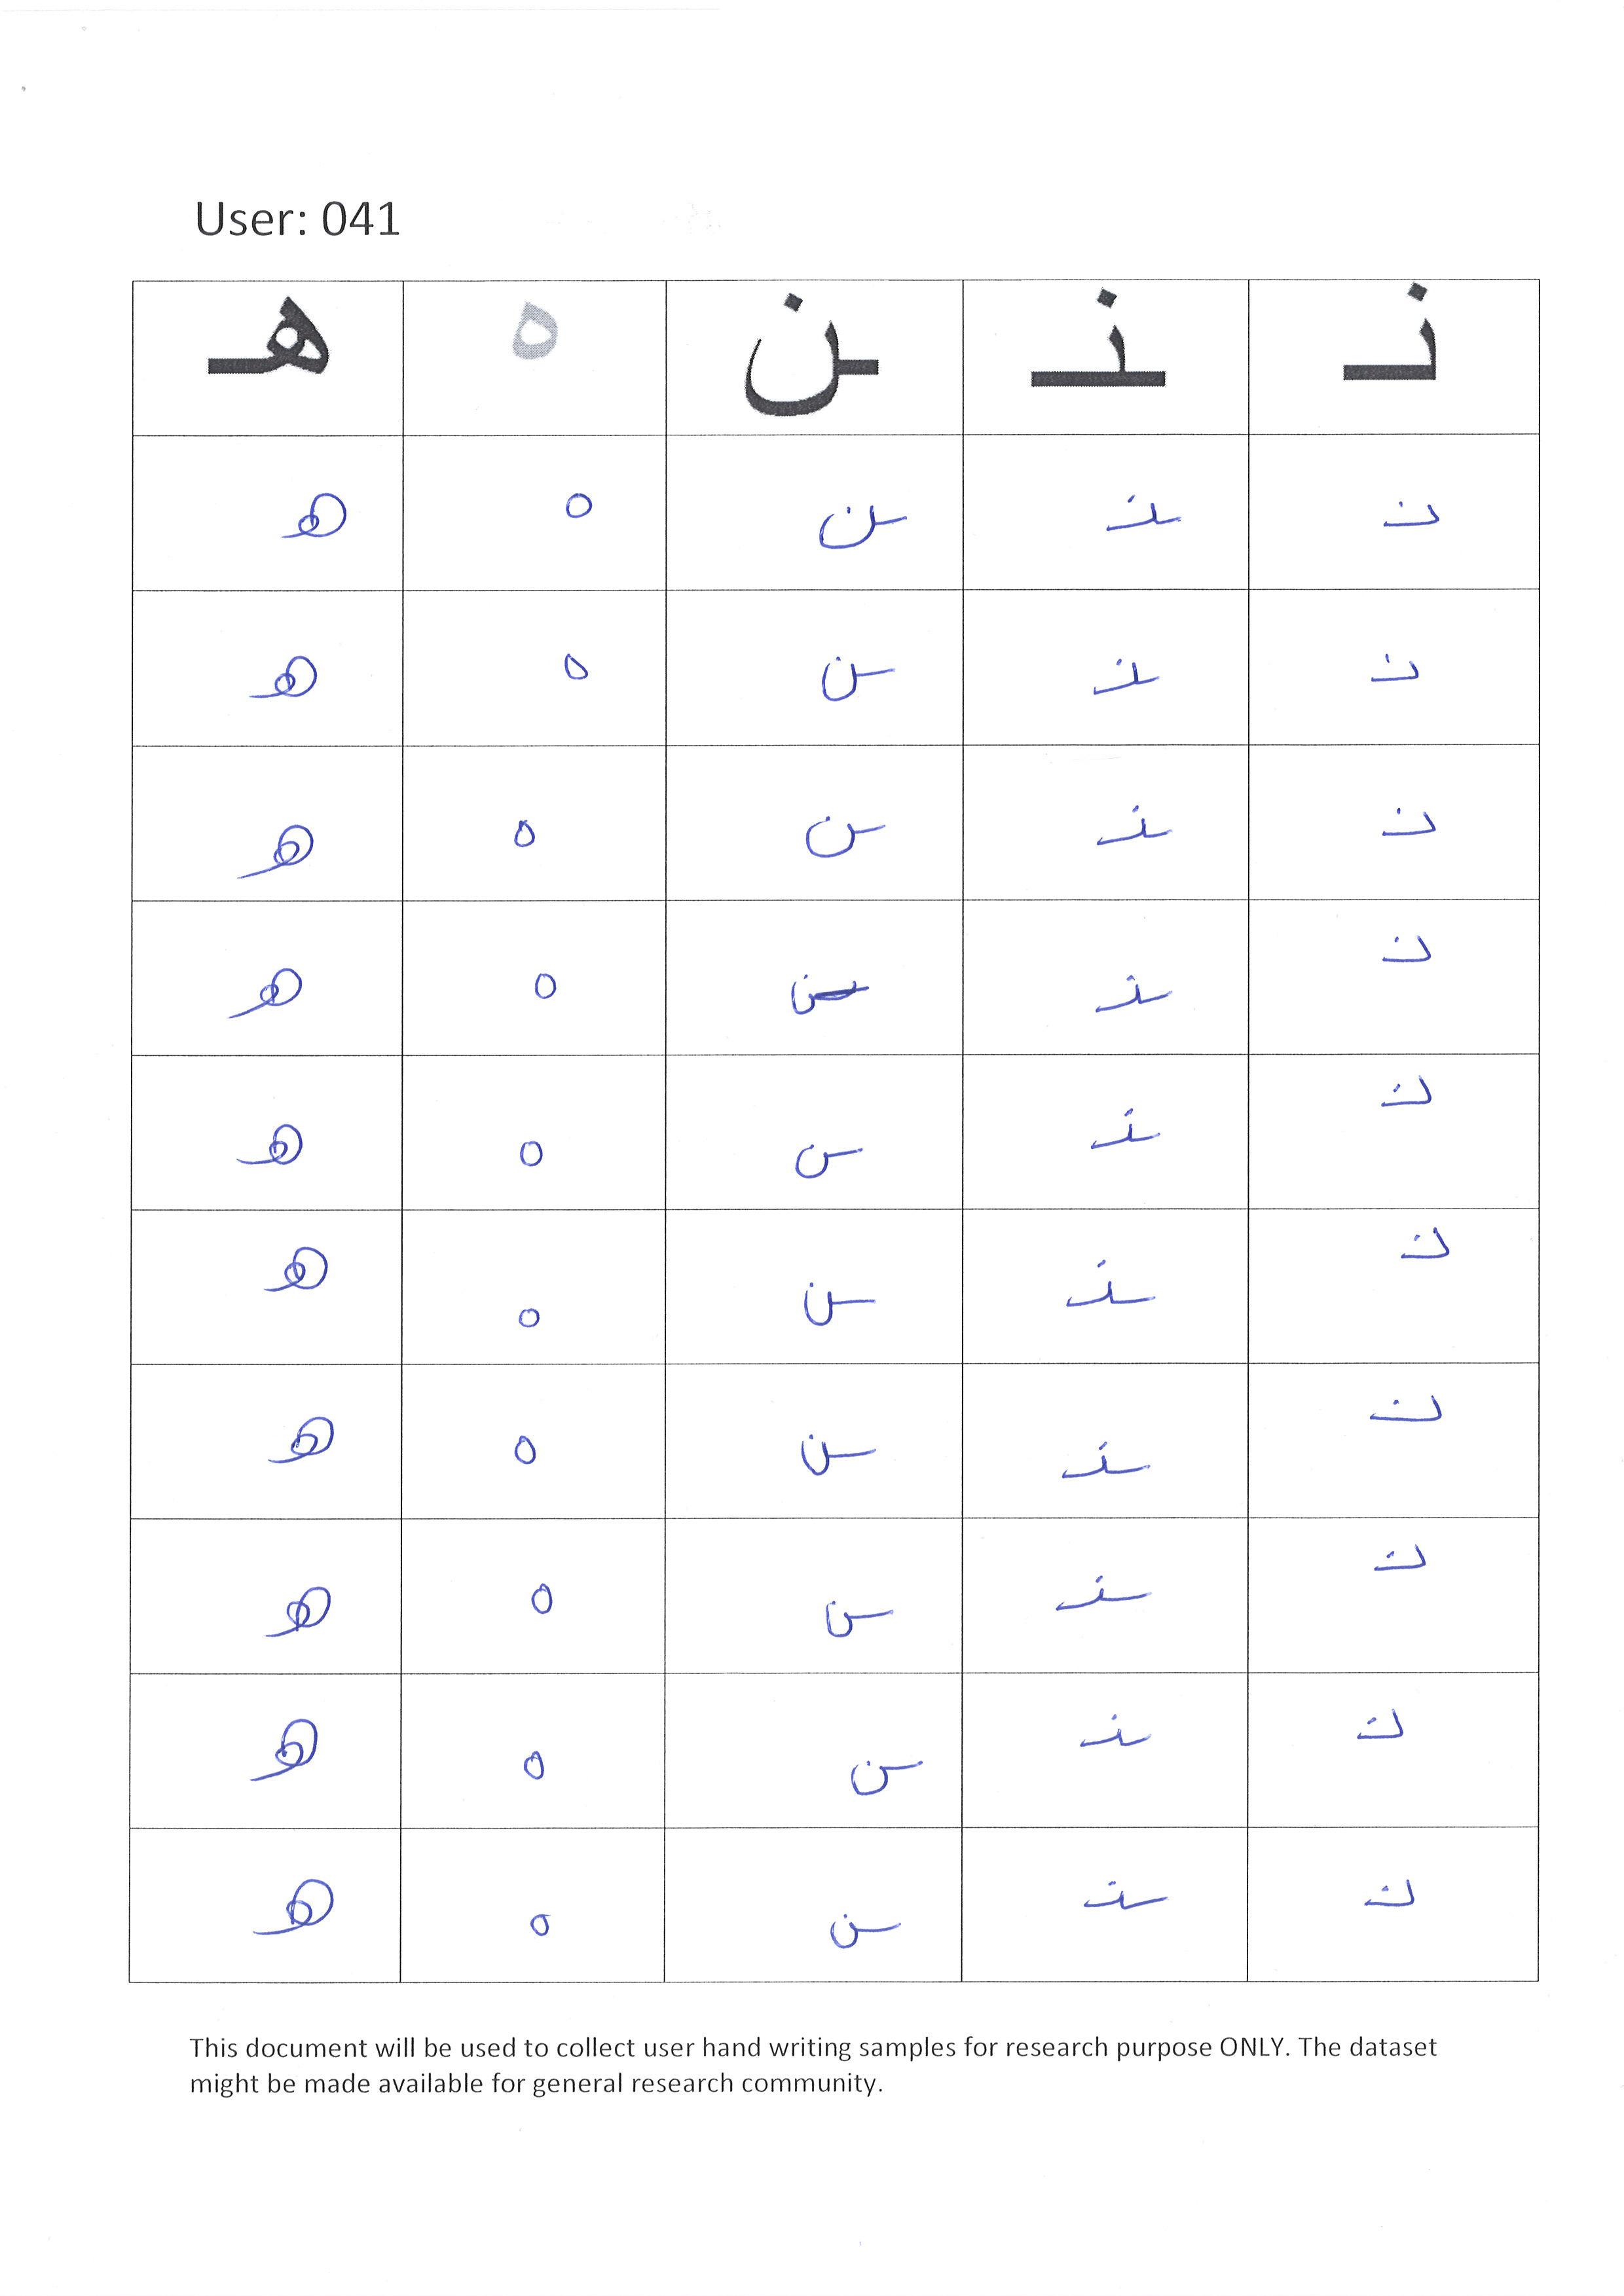 User: 041
نـ ـنـ ـن ه هـ
نـ ـنـ ـن ه هـ
نـ ـنـ ـن ه هـ
نـ ـنـ ـن ه هـ
نـ ـنـ ـن ه هـ
نـ ـنـ ـن ه هـ
نـ ـنـ ـن ه هـ
نـ ـنـ ـن ه هـ
نـ ـنـ ـن ه هـ
نـ ـنـ ـن ه هـ
نـ ـنـ ـن ه هـ
This document will be used to collect user hand writing samples for research purpose ONLY. The dataset
might be made available for general research community.